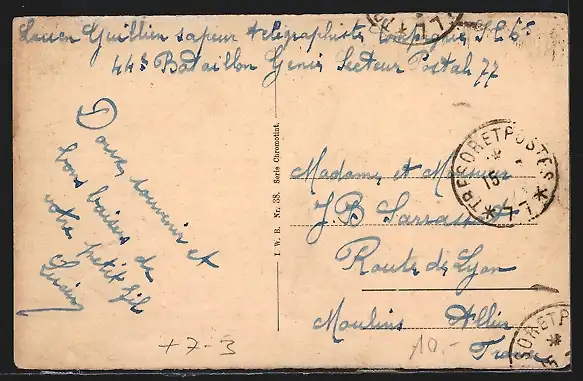 Lucien Guillien sapeur télégraphiste compagnie
44e Bataillon Génie Secteur Postal 77
Doux souvenir et
bons baisers de
votre petit fils
Lucien
I. W. B. Nr. 38. Serie Chromotint.
Madame et Monsieur
J B Sarrasset
Route de Lyon
Moulins Allier
France
TRESOR ET POSTES
15
* 77 *
+7-3
10.-